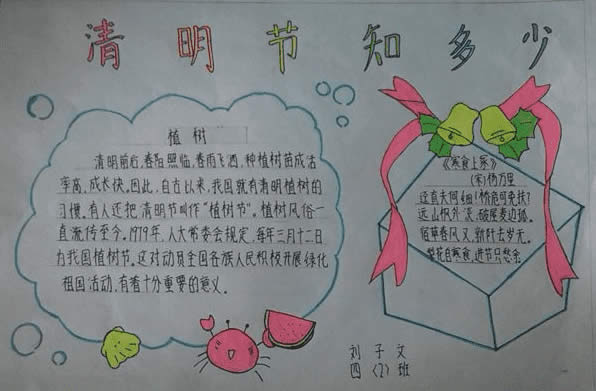 清明节知多少
植树
清明前后,春阳照临,春雨飞洒,种植树苗成活
率高,成长快。因此,自古以来,我国就有清明植树的
习惯。有人还把清明节叫作"植树节"。植树风俗一
直流传至今。1979年,人大常委会规定,每年三月十二日
为我国植树节。这对动员全国各族人民积极开展绿化
祖国活动,有着十分重要的意义。
《寒食上冢》
(宋)杨万里
迳直夫何细!桥危可免扶?
远山枫外淡,破屋麦边孤。
宿草春风又,新阡去岁无。
梨花自寒食,进节只愁余
刘子文
四(2)班